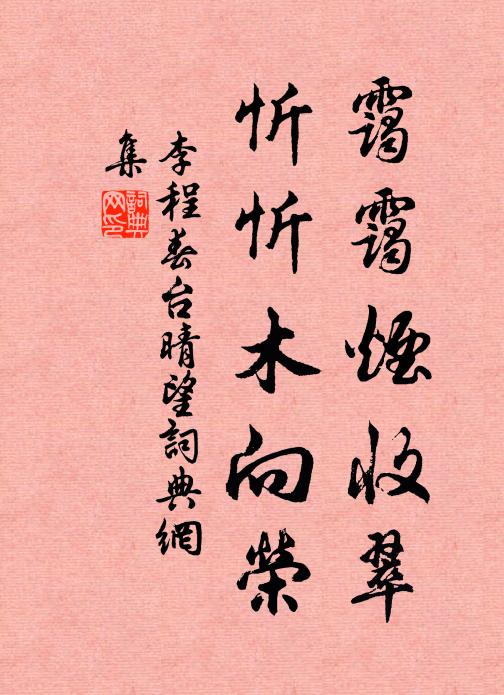 靄靄煙收翠
忻忻木向榮
李程春台晴望詞典網
集
詞典网印